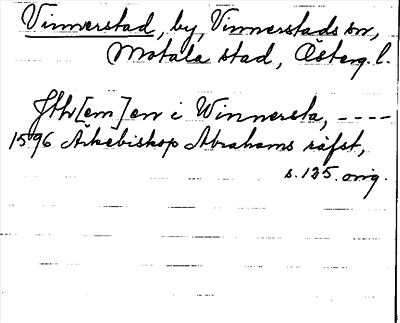 Vinnerstad, by, Vinnerstads sn,
Motala stad, Österg. l.
Jth[em]en i Winnersta, ----
1596 Ärkebiskop Abrahams räfst,
s. 125. orig.